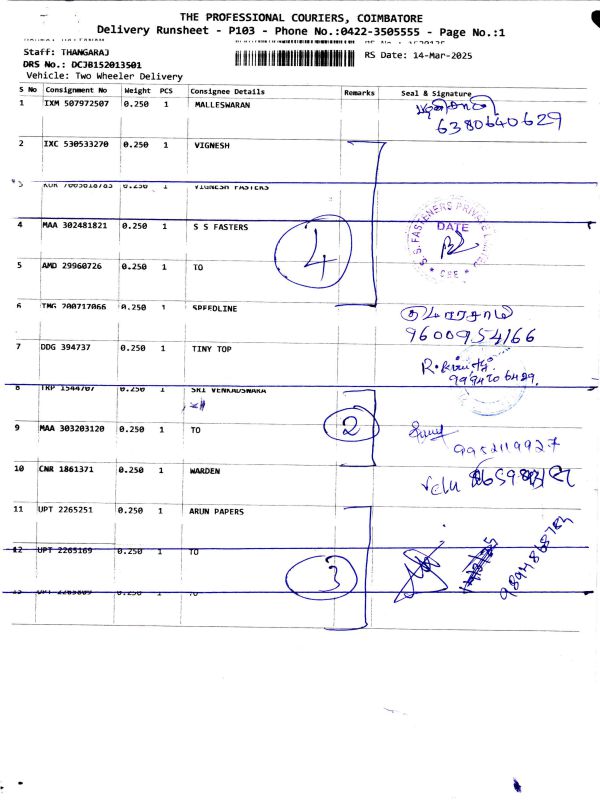 THE PROFESSIONAL COURIERS, COIMBATORE
Delivery Runsheet - P103 - Phone No.:0422-3505555 - Page No.:1
Staff: THANGARAJ
RS Date: 14-Mar-2025
DRS No.: DCJB152013501
Vehicle: Two Wheeler Delivery
S No Consignment No Weight PCS Consignee Details Remarks Seal & Signature
1 IXM 507972507 0.250 1 MALLESWARAN
6380640629
2 IXC 530533270 0.250 1 VIGNESH
VIGNESH FASTERS
4 MAA 302481821 0.250 1 S S FASTERS
4
S.S. FASTENERS PRIVATE LIMITED
DATE
* CBE *
5 AMD 29960726 0.250 1 TO
6 TMG 200717066 0.250 1 SPEEDLINE
9600954166
7 DDG 394737 0.250 1 TINY TOP
8 TRP 1544707 0.250 1
9 MAA 303203120 0.250 1 TO
2
9952119927
10 CNR 1861371 0.250 1 WARDEN
Velu
11 UPT 2265251 0.250 1 ARUN PAPERS
12 UPT 2265169 0.250 1 TO
3